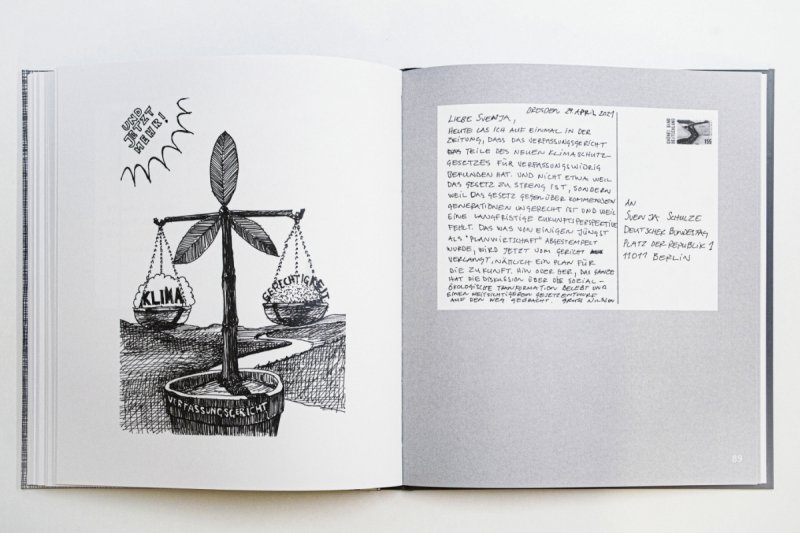 UND
JETZT
MEHR!
KLIMA
GERECHTIGKEIT
VERFASSUNGSGERICHT
DRESDEN 29. APRIL 2021
LIEBE SVENJA,
HEUTE LAS ICH AUF EINMAL IN DER
ZEITUNG, DASS DAS VERFASSUNGSGERICHT
DAS TEILE DES NEUEN KLIMASCHUTZ-
GESETZES FÜR VERFASSUNGSWIDRIG
BEFUNDEN HAT. UND NICHT ETWA WEIL
DAS GESETZ ZU STRENG IST, SONDERN
WEIL DAS GESETZ GEGENÜBER KOMMENDEN
GENERATIONEN UNGERECHT IST UND WEIL
EINE LANGFRISTIGE ZUKUNFTSPERSPEKTIVE
FEHLT. DAS WAS VON EINIGEN JÜNGST
ALS "PLANWIRTSCHAFT" ABGESTEMPELT
WURDE, WIRD JETZT VOM GERICHT
VERLANGT, NÄMLICH EIN PLAN FÜR
DIE ZUKUNFT. HIN ODER HER, DAS GANZE
HAT DIE DISKUSSION ÜBER DIE SOZIAL-
ÖKOLOGISCHE TRANSFORMATION BELEBT UND
EINEN WEITSICHTIGEREN GESETZENTWURF
AUF DEN WEG GEBRACHT. GRUSS
AN
SVENJA SCHULZE
DEUTSCHER BUNDESTAG
PLATZ DER REPUBLIK 1
11011 BERLIN
89